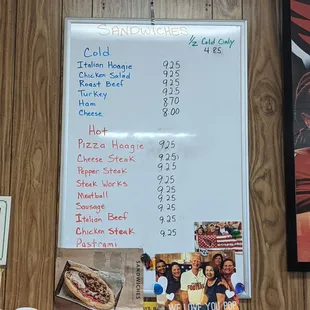 SANDWICHES
1/2 Cold Only
4.85
Cold
Italian Hoagie 9.25
Chicken Salad 9.25
Roast Beef 9.25
Turkey 9.25
Ham 8.70
Cheese 8.00
Hot
Pizza Hoagie 9.25
Cheese Steak 9.25
Pepper Steak 9.25
Steak Works 9.25
Meatball 9.25
Sausage 9.25
Italian Beef 9.25
Chicken Steak 9.25
Pastrami
SANDWICHES
WE LOVE YOU